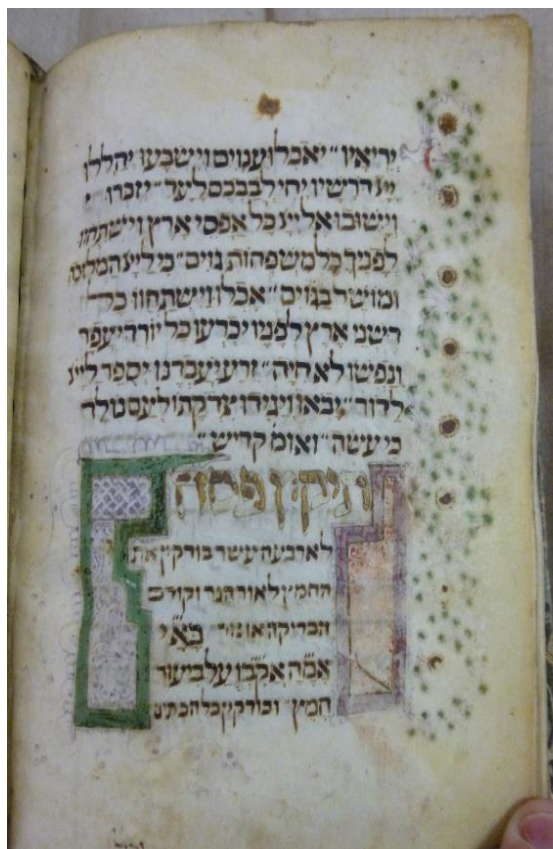 יריאיו״ יאכלו ענוים וישבעו יהללו
ייָ דרשיו יחי לבבכם לעד״ יזכרו
וישובו אל ייָ כל אפסי ארץ וישתחוו
לפניך כל משפחות גוים״ כי לייָ המלוכה
ומושל בגוים״ אכלו וישתחוו כל
דשני ארץ לפניו יכרעו כל יורדי עפר
ונפשו לא חיה״ זרע יעבדנו יסופר לייָ
לדור״ יבאו ויגידו צדקתו לעם נולד
כי עשה״ ואומ קדיש״
תיקון פסח
לארבעה עשר בודקין את
החמץ לאור הנר וקודם
הבדיקה אומר בָאֵ״י
אמ״ה אקב״ו על ביעור
חמץ ובודקין כל